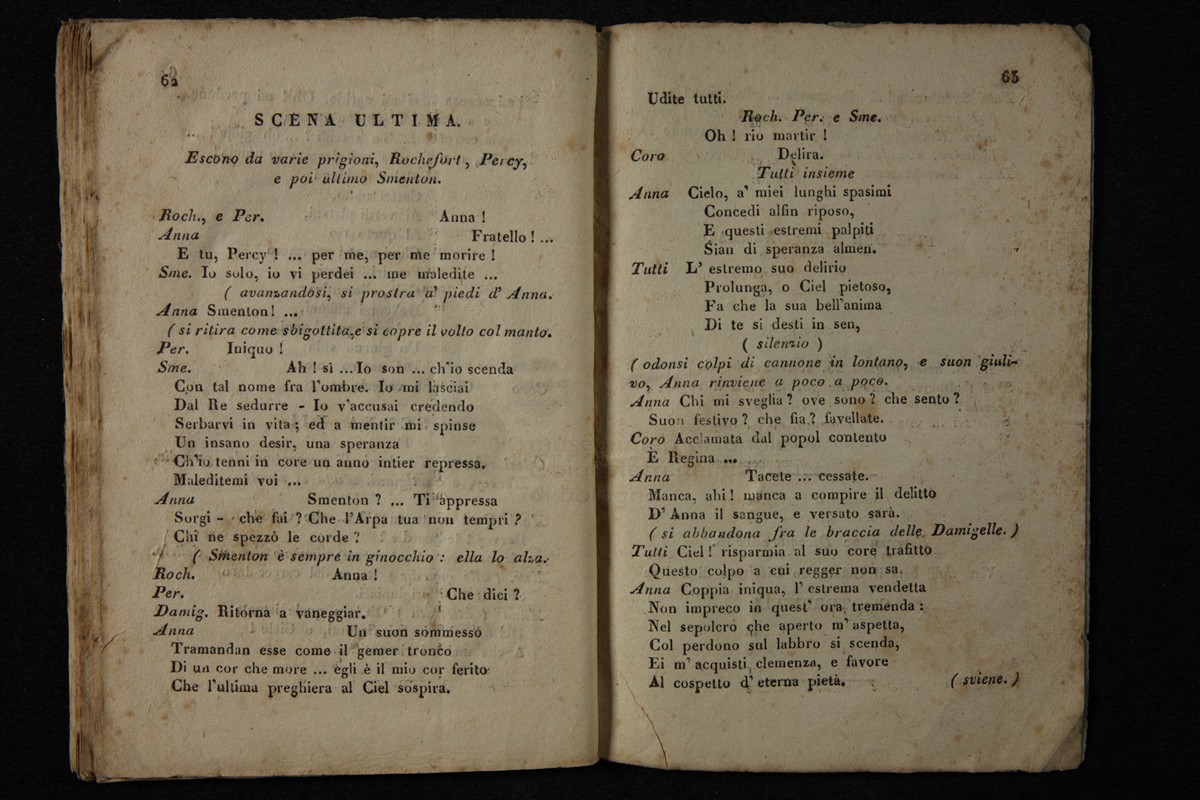 62
SCENA ULTIMA.
Escono da varie prigioni, Rochefort, Percy,
e poi ultimo Smenton.
Roch., e Per. Anna !
Anna Fratello ! ...
E tu, Percy ! ... per me, per me morire !
Sme. Io solo, io vi perdei ... me maledite ...
( avanzandosi, si prostra a' piedi d' Anna.
Anna Smenton! ...
( si ritira come sbigottita, e si copre il volto col manto.
Per. Iniquo !
Sme. Ah ! sì ... Io son ... ch'io scenda
Con tal nome fra l'ombre. Io mi lasciai
Dal Re sedurre - Io v'accusai credendo
Serbarvi in vita ; ed a mentir mi spinse
Un insano desir, una speranza
Ch'io tenni in core un anno intier repressa.
Maleditemi voi ...
Anna Smenton ? ... Ti appressa
Sorgi - che fai ? Che l'Arpa tua non tempri ?
Chi ne spezzò le corde ?
( Smenton è sempre in ginocchio : ella lo alza.
Roch. Anna !
Per. Che dici ?
Damig. Ritorna a vaneggiar.
Anna Un suon sommesso
Tramandan esse come il gemer tronco
Di un cor che more ... egli è il mio cor ferito
Che l'ultima preghiera al Ciel sospira.
63
Udite tutti.
Roch. Per. e Sme.
Oh ! rio martir !
Coro Delira.
Tutti insieme
Anna Cielo, a' miei lunghi spasimi
Concedi alfin riposo,
E questi estremi palpiti
Sian di speranza almen.
Tutti L' estremo suo delirio
Prolunga, o Ciel pietoso,
Fa che la sua bell'anima
Di te si desti in sen,
( silenzio )
( odonsi colpi di cannone in lontano, e suon giuli-
vo, Anna rinviene a poco a poco.
Anna Chi mi sveglia ? ove sono ? che sento ?
Suon festivo ? che fia ? favellate.
Coro Acclamata dal popol contento
È Regina ...
Anna Tacete ... cessate.
Manca, ahi ! manca a compire il delitto
D' Anna il sangue, e versato sarà.
( si abbandona fra le braccia delle Damigelle. )
Tutti Ciel ! risparmia al suo core trafitto
Questo colpo a cui regger non sa.
Anna Coppia iniqua, l' estrema vendetta
Non impreco in quest' ora tremenda :
Nel sepolcro che aperto m' aspetta,
Col perdono sul labbro si scenda,
Ei m' acquisti clemenza, e favore
Al cospetto d' eterna pietà. ( sviene. )